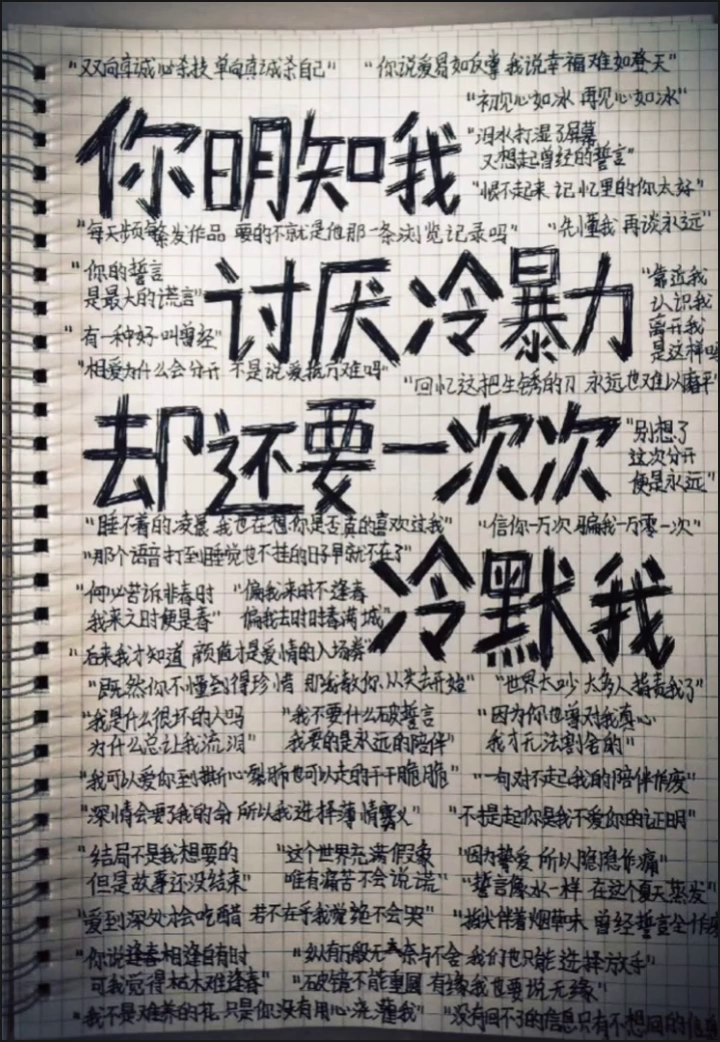 "双向真诚必杀技 单向真诚杀自己"
"你说爱易如反掌 我说幸福难如登天"
"初见心如冰 再见心如冰"
你明知我
"泪水打湿了屏幕
又想起曾经的誓言"
"恨不起来 记忆里的你太好"
"每天频繁发作品 要的不就是他那一条浏览记录吗"
"先懂我 再谈永远"
"你的誓言
是最大的谎言"
讨厌冷暴力
"靠近我
认识我
离开我
是这样吗
"有一种好 叫曾经"
"相爱为什么会分开 不是说爱抵万难吗"
"回忆这把生锈的刀 永远也难以磨平"
却还要一次次
"别想了
这次分开
便是永远"
"睡不着的凌晨 我也在想 你是否真的喜欢过我"
"信你一万次 骗我一万零一次"
"那个语音打到睡觉也不挂的日子早就不在了"
冷默我
"何必苦诉非春时
我来之时便是春"
"偏我来时不逢春
偏我去时时春满城"
"后来我才知道 颜值才是爱情的入场券"
"既然你不懂到得珍惜 那我教你从失去开始"
"世界太吵 太多人指责我了"
"我是什么很坏的人吗
为什么总让我流泪"
"我不要什么破誓言
我要的是永远的陪伴"
"因为你也曾对我真心
我才无法割舍的"
"我可以爱你到撕心裂肺也可以走的干干脆脆"
"一句对不起我的陪伴作废"
"深情会要了我的命 所以我选择薄情寡义"
"不提起你是我不爱你的证明"
"结局不是我想要的
但是故事还没结束"
"这个世界充满假象
唯有痛苦不会说谎"
"因为挚爱 所以隐隐作痛"
"誓言像水一样 在这个夏天蒸发"
"爱到深处才会吃醋 若不在乎我觉绝不会哭"
"指尖伴着烟草味 曾经誓言全作废
"你说逢春相逢自有时
可我觉得枯木难逢春"
"纵有万般无奈与不舍 我们也只能选择放手"
"破镜不能重圆 有缘我也要说无缘"
"我不是难养的花 只是你没有用心浇灌我"
"没有回不了的信息只有不想回的信息